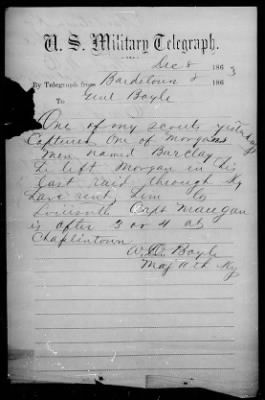 U. S. Military Telegraph.
Dec 8 1863
By Telegraph from Bardstown 8 186
To Genl Boyle
One of my scouts yesterday
Captured One of Morgans
Men named Barclay
He left Morgan in his
last raid through Ky
have sent him to
Louisville Capt Maregan
is after 3 or 4 at
Chaplintown
W. O. Boyle
Maj 11th Ky